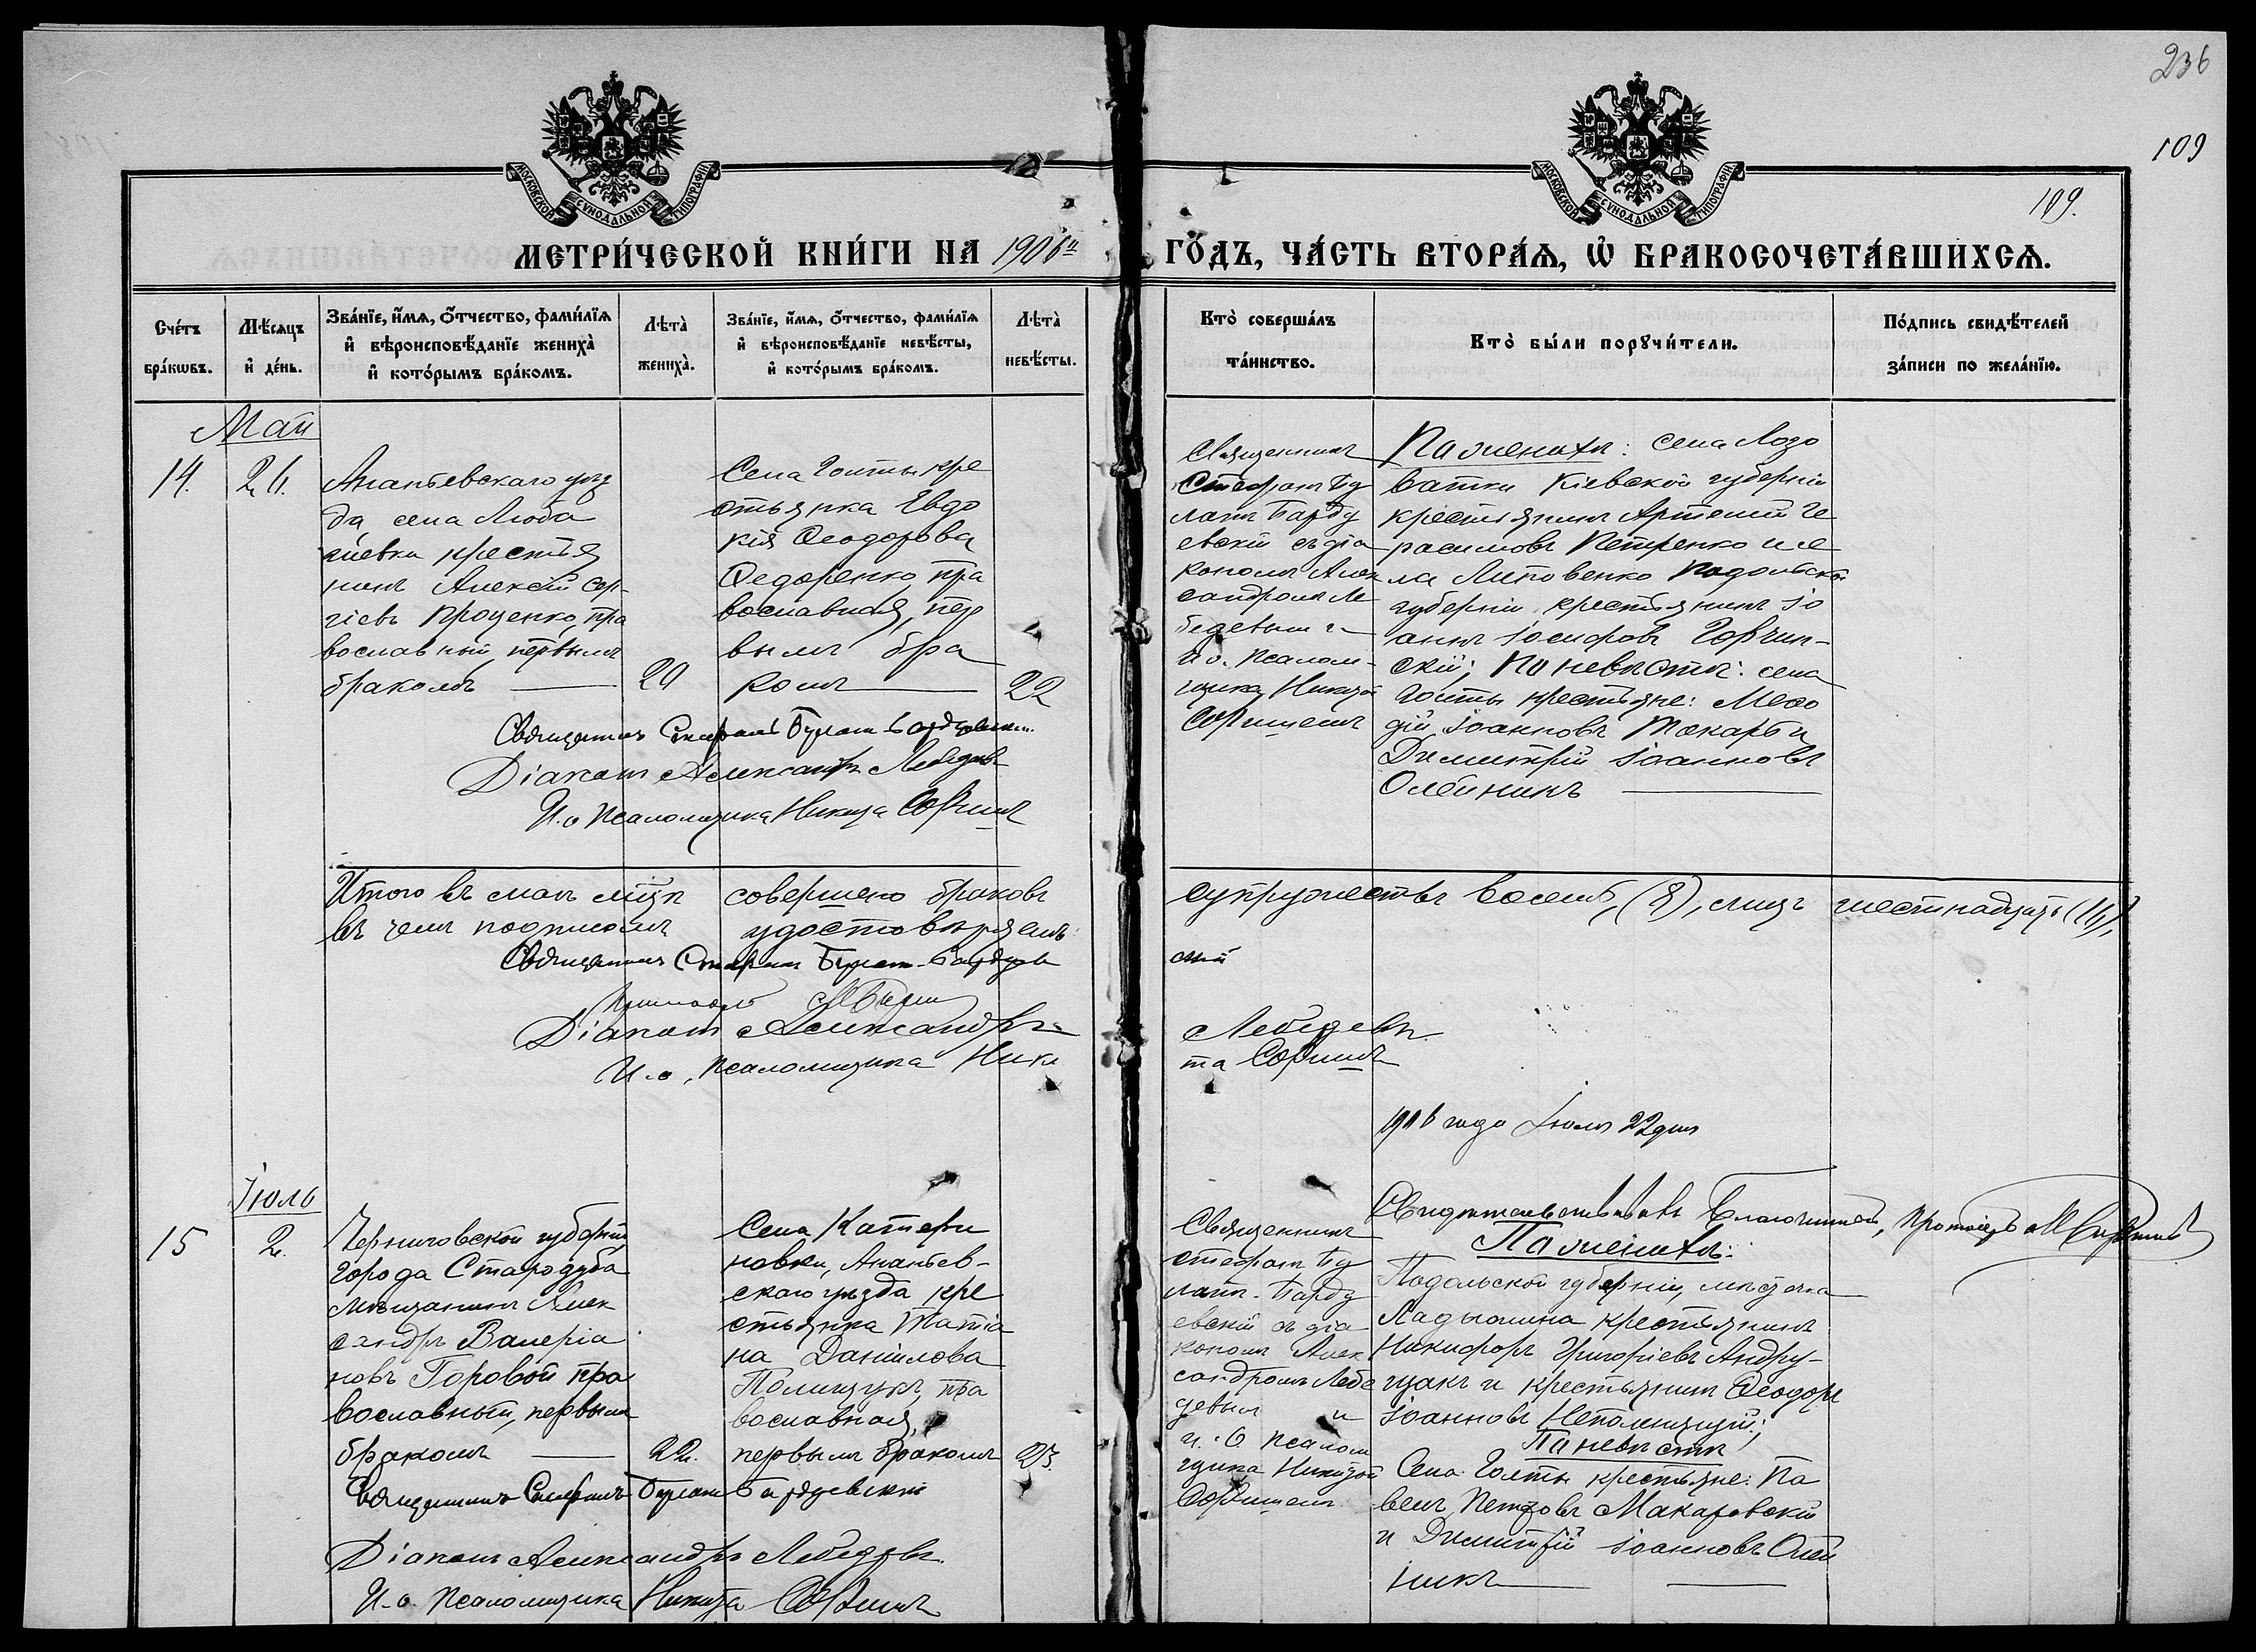 236
109
109.
МОСКОВСКОЙ СУНОДАЛЬНОЙ ТИПОГРАФІИ
МОСКОВСКОЙ СУНОДАЛЬНОЙ ТИПОГРАФІИ
МЕТРИ́ЧЕСКОЙ КНИ́ГИ НА 1906й ГО́ДЪ, ЧА́СТЬ ВТОРА́Ѧ, Ѽ БРАКОСОЧЕТА́ВШИХСѦ.
Сче́тъ
бра́кѡвъ.
Мѣ́сяцъ
и҆ де́нь.
Зва́нїе, и҆́мѧ, ѻ҆́тчество, фами́лїѧ
и҆ вѣроисповѣ́данїе жениха̀
и҆ кото́рымъ бра́комъ.
Лѣта̀
жениха̀.
Зва́нїе, и҆́мѧ, ѻ҆́тчество, фами́лїѧ
и҆ вѣроисповѣ́данїе невѣ́сты,
и҆ кото́рымъ бра́комъ.
Лѣта̀
невѣ́сты.
Кто̀ соверша́лъ
та́инство.
Кто̀ бы́ли порꙋчи́тели.
По́дпись свидѣ́телей
за́писи по жела́нїю.
Май
14.
26.
Ананьевскаго уѣз
да, села Люба
шевки крестья
нинъ Алексій Сер-
гіевъ Проценко, пра
вославный, первымъ
бракомъ
29
Села Голты кре
стьянка Евдо
кія Ѳеодорова
Федоренко, пра
вославная, пер
вымъ бра
комъ
22
Священникъ
Стефанъ Бу
латъ-Барду
евскій съ діа
кономъ Алек
сандромъ Ле
бедевымъ и
и. о. псалом-
щика Никитой
По женихѣ: села Лозо
ватки Кіевской губерніи
крестьянинъ Артемій Ге
расимовъ Петренко и се
ла Липовенко Подольской
губерніи крестьянинъ Іо
аннъ Іосифовъ Горчин-
скій; По невѣстѣ: села
Голты крестьяне: Меѳо
дій Іоанновъ Токарь и
Димитрій Іоанновъ
Олейникъ
Священникъ Стефанъ Булатъ-Бардуевскій
Діаконъ Александръ Лебедевъ
И. о. псаломщика Никита
Итого въ маѣ мѣсяцѣ совершено браковъ супружествъ восемь, (8), лицъ шестнадцать (16),
въ чемъ подписомъ удостовѣряемъ:
Священникъ Стефанъ Булатъ-Бардуев
скій
Діаконъ Александръ Лебедевъ.
И. о. псаломщика Ники
та
1906 года Іюля 22 дня
Свидѣтельствовалъ Благочинный, Протоіерей
Іюль
15
2.
Черниговской губерніи
города Стародуба
мѣщанинъ Алек
сандръ Валеріа
новъ Горовой пра
вославный, первымъ
бракомъ
22.
Села Катери
новки, Ананьев-
скаго уѣзда кре
стьянка Татіа
на Даніилова
Полищукъ, пра
вославная,
первымъ бракомъ
23.
Священникъ
Стефанъ Бу
латъ-Барду
евскій съ діа
кономъ Алек
сандромъ Лебе
девымъ и
и. о. псалом
щика Никитой
По женихѣ:
Подольской губерніи, мѣстечка
Ладыжина крестьянинъ
Никифоръ Григоріевъ Андру-
щакъ и крестьянинъ Ѳеодоръ
Іоанновъ
По невѣстѣ
Села Голты крестьяне: Па
велъ Петровъ Макаровскій
и Димитрій Іоанновъ Олей
никъ
Священникъ Стефанъ Булатъ Бардуевскій
Діаконъ Александръ Лебедевъ.
И. о. псаломщика Никита